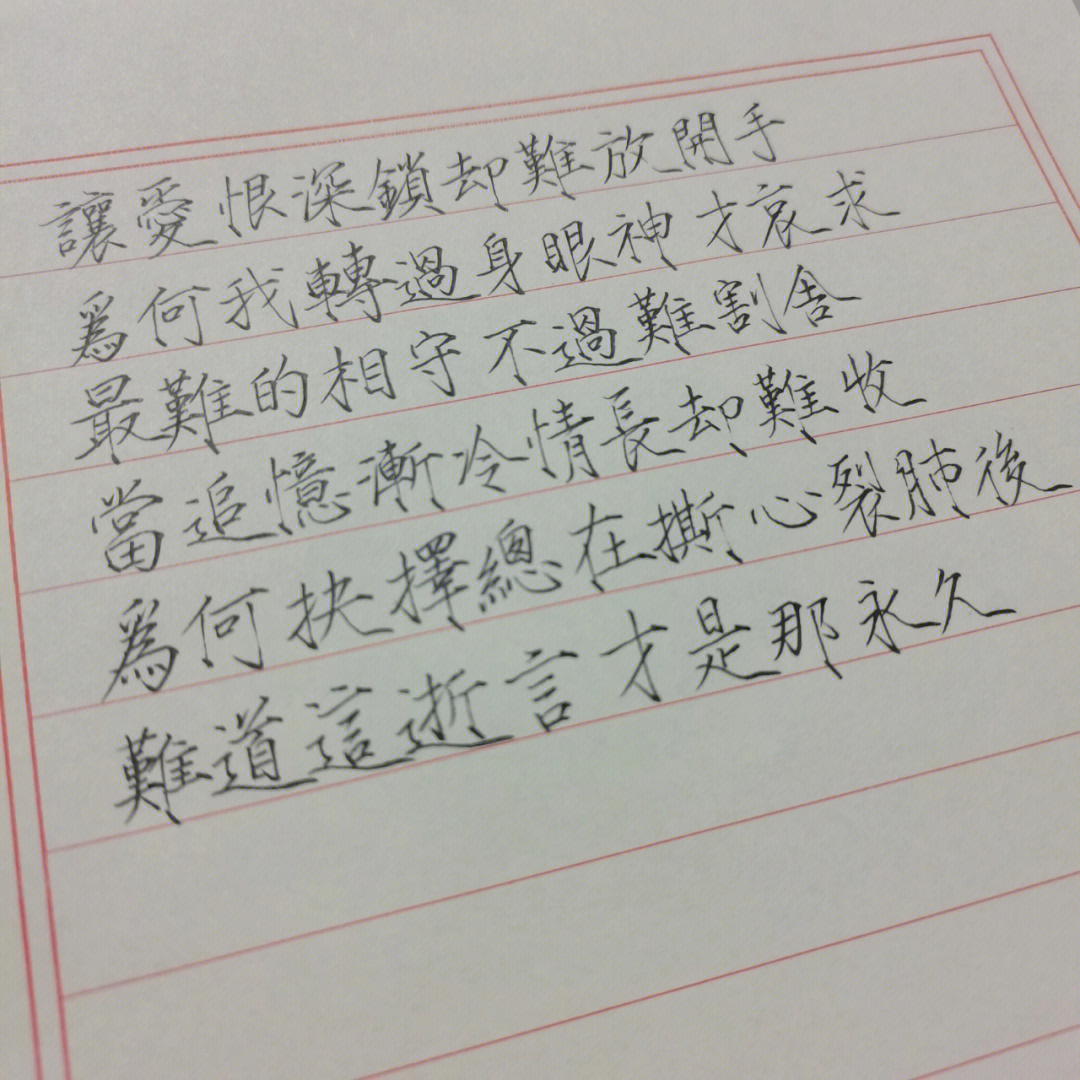 讓愛恨深鎖却難放開手
爲何我轉過身眼神才哀求
最難的相守不過難割舍
當追憶漸冷情長却難收
爲何抉擇總在撕心裂肺後
難道這逝言才是那永久